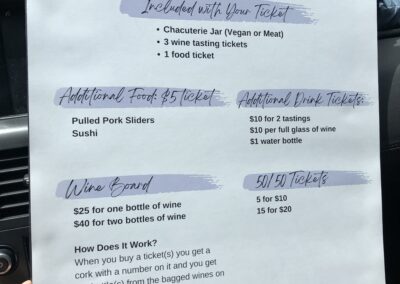 Included with Your Ticket
• Chacuterie Jar (Vegan or Meat)
• 3 wine tasting tickets
• 1 food ticket
Additional Food: $5 Ticket
Pulled Pork Sliders
Sushi
Additional Drink Tickets:
$10 for 2 tastings
$10 per full glass of wine
$1 water bottle
Wine Board
$25 for one bottle of wine
$40 for two bottles of wine
50/50 Tickets
5 for $10
15 for $20
How Does It Work?
When you buy a ticket(s) you get a
cork with a number on it and you get
from the bagged wines on